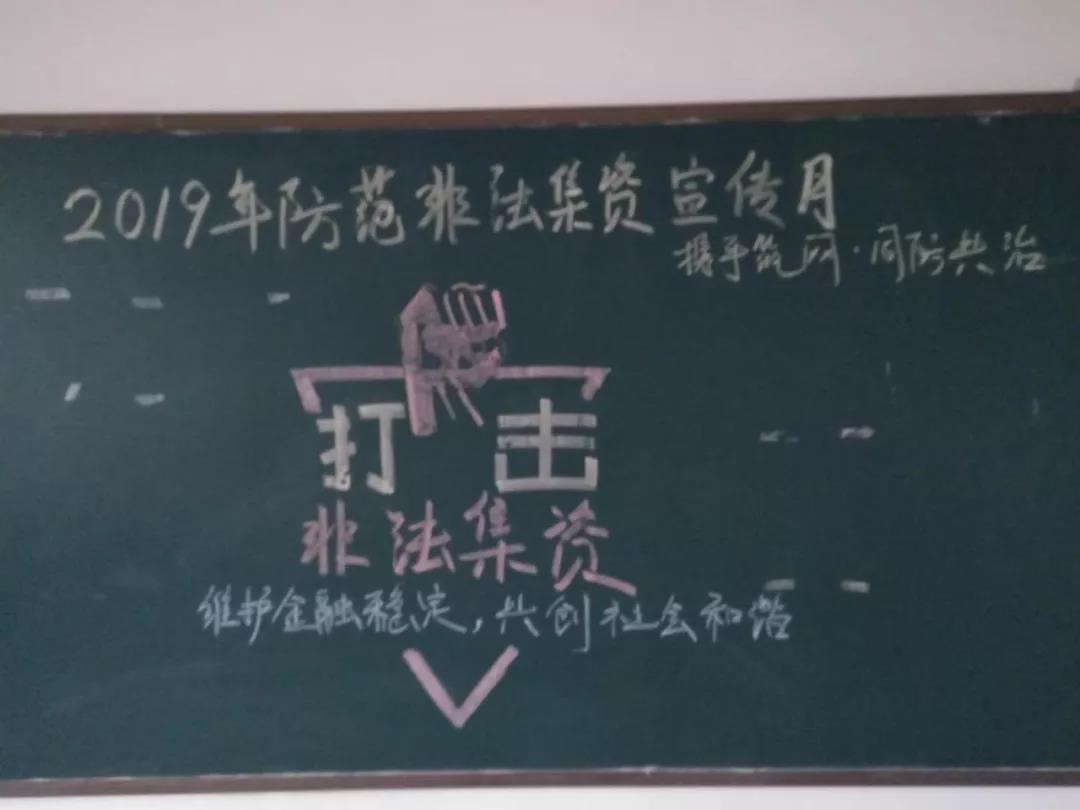 2019年防范非法集资宣传月
携手筑网·同防共治
打击
非法集资
维护金融稳定，共创社会和谐